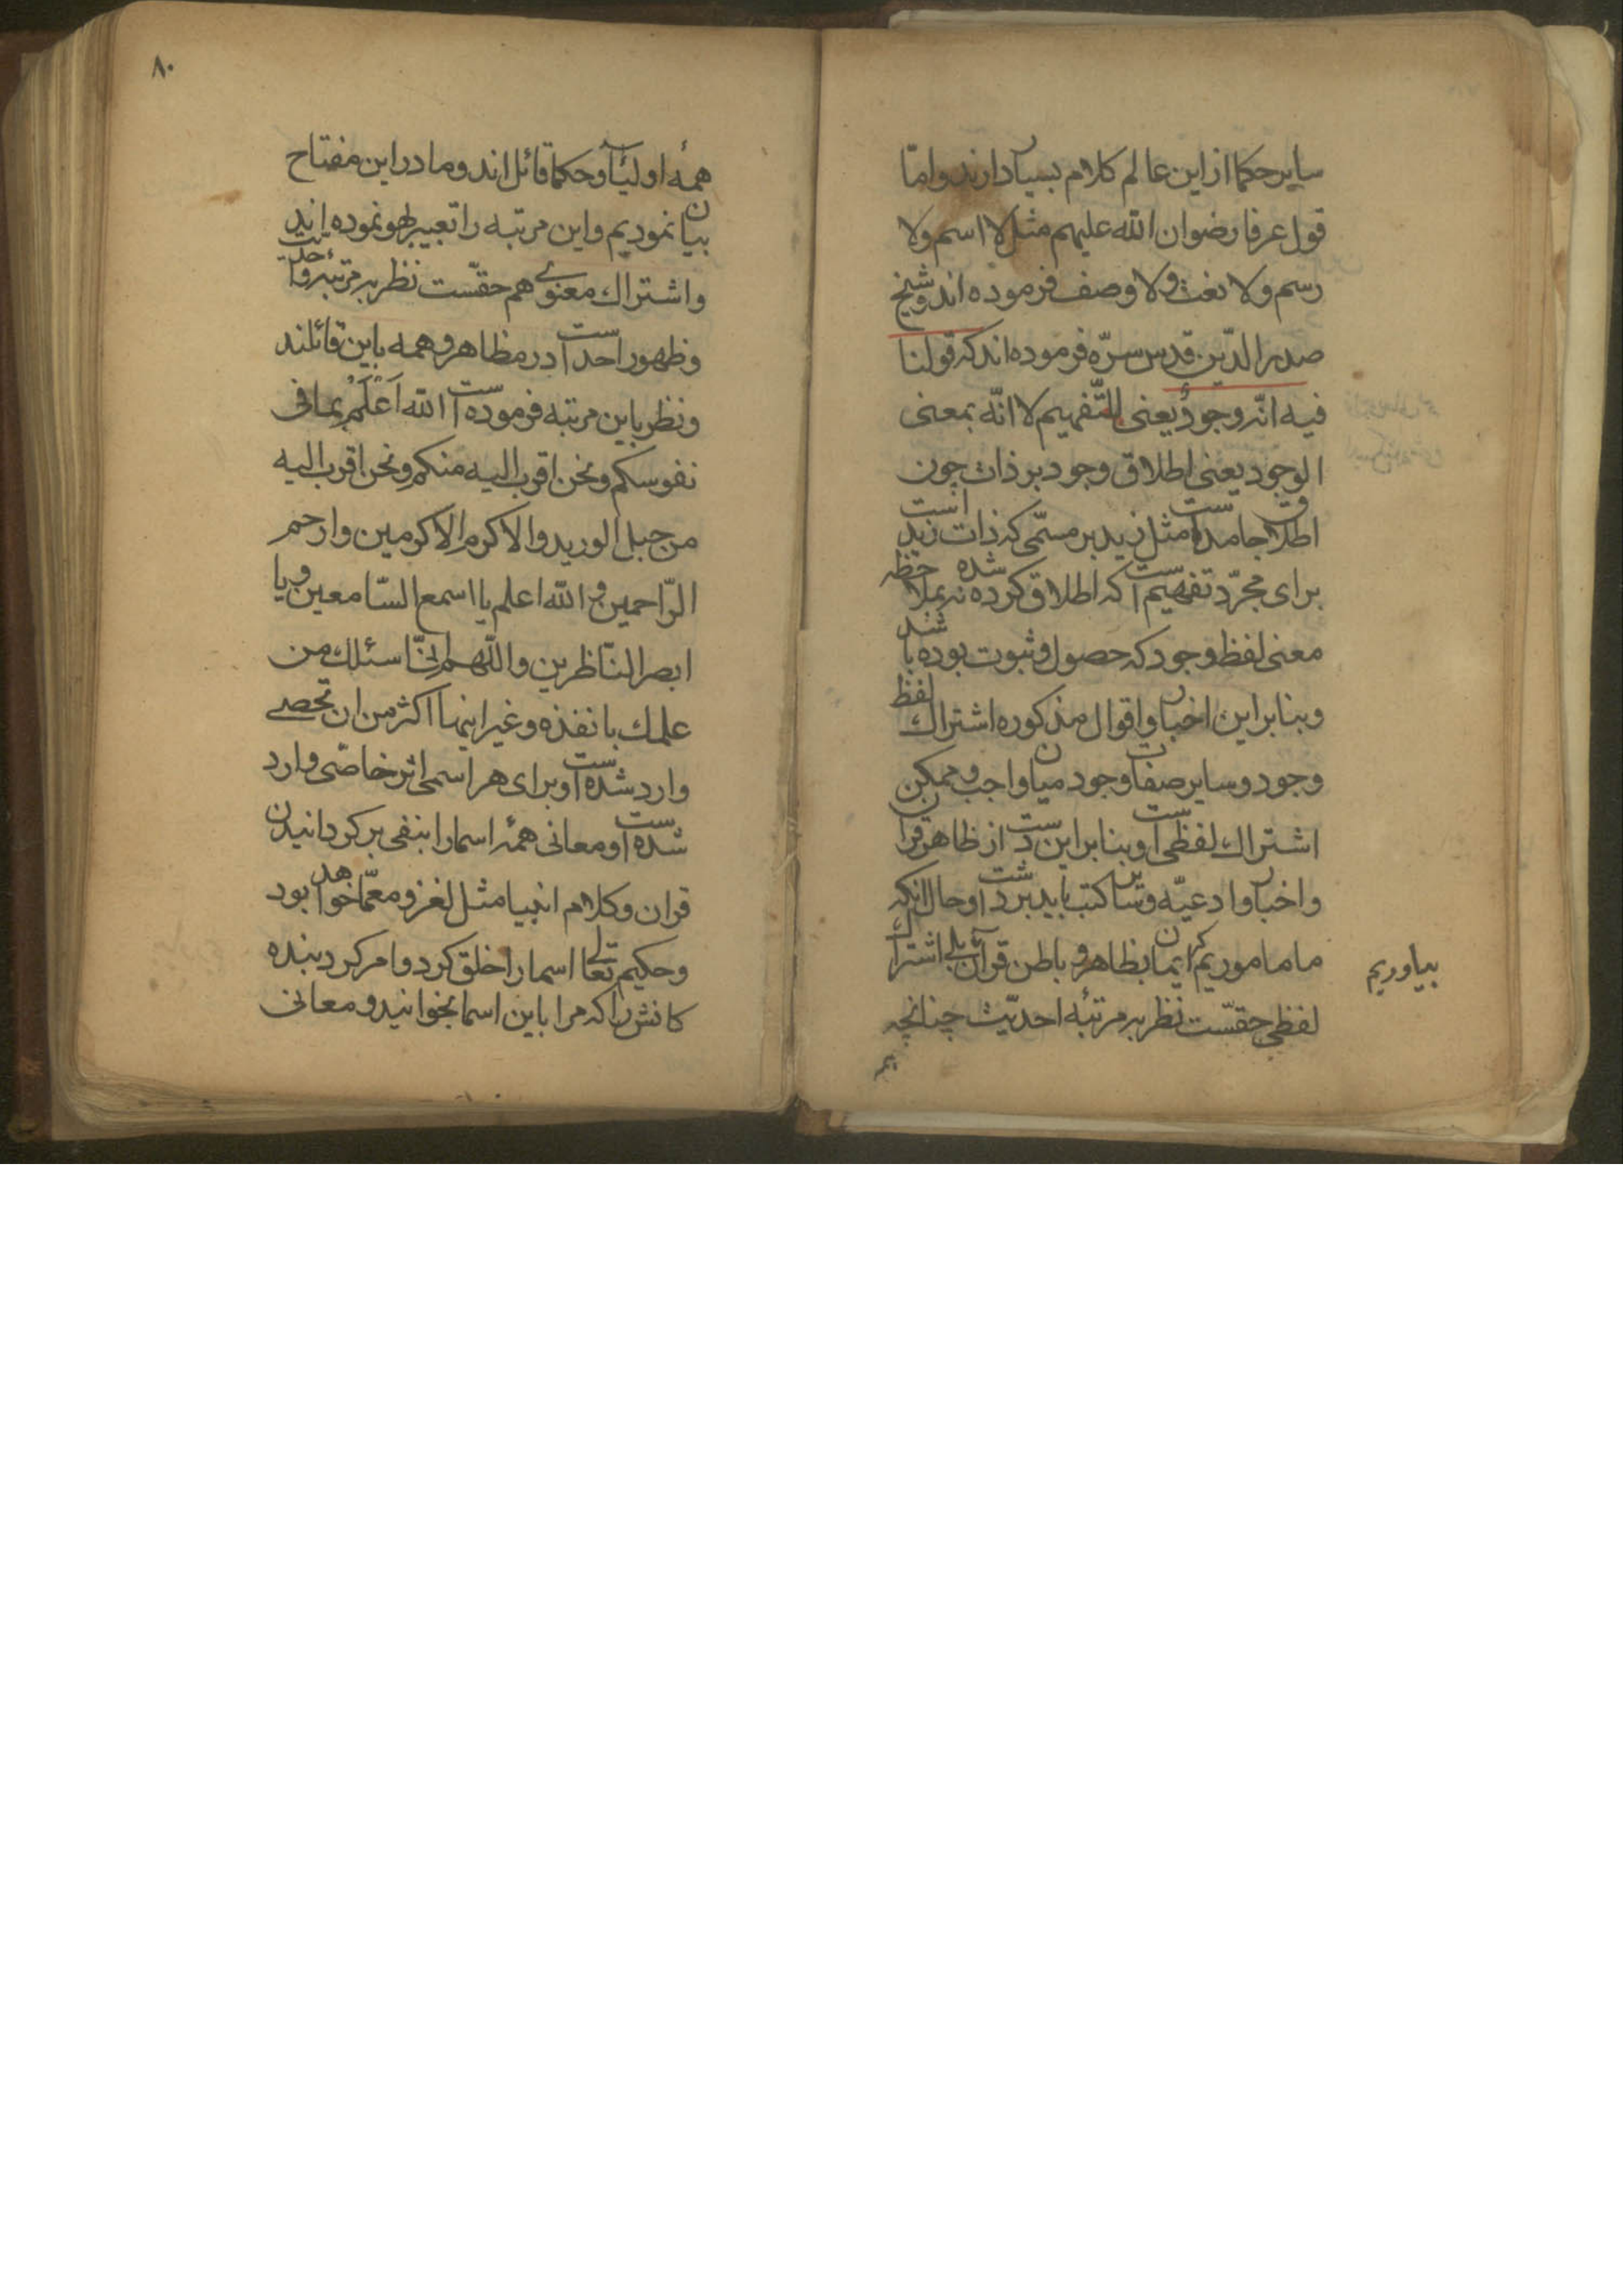 سایر حکما از این عالم کلام بسیار دارند و امّا
قول عرفا رضوان الله علیهم مثل لا اسم ولا
رسم ولا نعت ولا وصف فرموده اند و شیخ
صدر الدّین قدس سرّه فرموده اند که قولنا
فیه انّه وجودٌ یعنی للتّفهیم لا انّه بمعنی
الوجود یعنی اطلاق وجود بر ذات چون
اطلاق جامدست مثل زید بر مسمّی که ذات زید است
برای مجرّد تفهیم است که اطلاق کرده شده نه بملاحظه
معنی لفظ وجود که حصول و ثبوت بوده باشد
و بنابر این اخبار و اقوال مذکوره اشتراك لفظ
وجود و سایر صفات وجود میان واجب و ممکن
اشتراك لفظی است و بنابر این دست از ظاهر قران
و اخبار و ادعیّه و سایر کتب باید برداشت و حال انکه
ما ماموریم که ایمان بظاهر و باطن قران بیاوریم بلی اشتراك
لفظی حقّست نظر به مرتبهٔ احدیّت چنانچه
همه
۸۰
همهٔ اولیٰآء و حکما قائل اند و ما در این مفتاح
بیان نمودیم و این مرتبه را تعبیر بهو نموده اند
و اشتراك معنوی هم حقّست نظر به مرتبهٔ واحدیت
و ظهور احدست در مظاهر و همه باین قائلند
و نظر باین مرتبه فرموده است الله اَعْلَمُ بما فی
نفوسکم و نحن اقرب الیه منکم و نحن اقرب الیه
من حبل الورید و الاکرم الاکرمین و ارحم
الرّاحمین و الله اعلم یا اسمع السّامعین و یا
ابصر النّاظرین و اللّهم انّی اسئلك من
علمك بانفذه و غیر اینها اکثر من ان تحصی
وارد شده است و برای هر اسمی اثر خاصّی وارد
شده است و معانی همهٔ اسما را بنفی بر کردانیدن
قران و کلام انبیا مثل لغز و معمّا خواهد بود
و حکیم تعالی اسما را خلق کرد و امر کرد بنده
کانش را که مرا باین اسما بخوانید و معانی